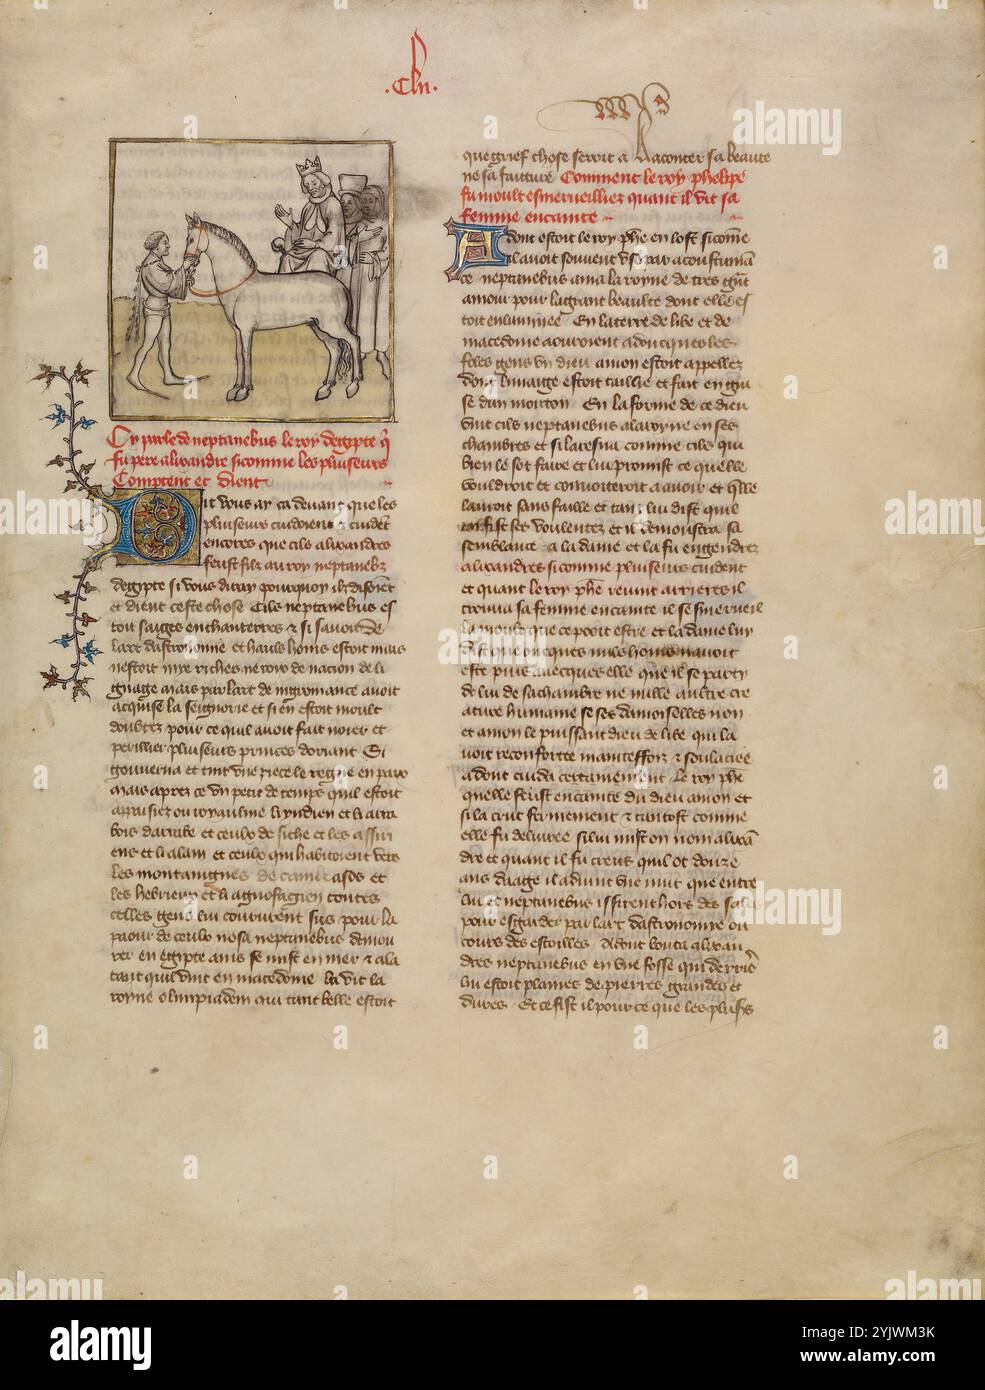 .Cln.
Cy parle de neptanebus le roy degypte q̄
fu pere alixandre si comme les pluiseurs
Comptent et dient
Dit vous ay ca devant que les
pluiseurs cuidoient & cuidēt
encores que cils alixandres
feust filz au roy neptanebz
degypte si vous diray pourquoy ilz disoiēt
et dient ceste chose Cils neptanebus es
toit saiges enchanterres & si savoit de
lart dastronomie et hauls homs estoit mais
nestoit mie riches ne roy de nacion de li
gnage mais par lart de nigromance avoit
acquise la seignorie et si en estoit moult
doubtez pour ce quil avoit fait noier et
perillier pluiseurs princes doriant Si
gouverna et tint une piece le regne en paix
mais apres ce un petit de temps quil estoit
appaisiez ou royaulme li yndien et li arra
bois darrabe et ceulx de siche et les assiri
ens et li alain et ceulx qui habitoient vers
les montaingnes de et
les hebrieux et li agnofagien contes
celles gens lui coururent sus pour la
paour de ceulx nosa neptanebus demou
rer en egipte ains se mist en mer & ala
tant quil vint en macedoine la vit la
royne olimpiadem qui tant belle estoit
que grief chose seroit a Raconter sa beaute
ne sa faiture Comment le roy phelippe
fu moult esmerveilliez quant il vit sa
femme encainte
Adont estoit le roy phē en lost si cōme
il avoit souvent usé par acoustuman
ce neptanebus ama la royne de tres grāt
amour pour la grant beaulte dont elle es
toit enluminee En la terre de libe et de
macedoine aouroient adoncques les
foles gens un dieu amon estoit appellez
dont limaige estoit taillie et fait en gui
se dun mouton En la forme de ce dieu
vint cils neptanebus a la royne en ses
chambres et si laresna comme cils qui
bien le sot faire et lui promist ce quelle
vouldroit et convoiteroit a avoir et quelle
lauroit sans faille et tant lui dist quil
en fist ses voulentez et il demoustra sa
semblance a la dame et la fu engendrez
alixandres si comme pluiseurs cuident
et quant le roy phē revint arrieres il
trouva sa femme encainte il se smerveil
la moult que ce pooit estre et la dame luy
dist que oncques nuls homs navoit
este puis avecques elle que il se party
de lui de sa chambre ne nulle aultre cre
ature humaine se ses damoiselles non
et amon le puissant dieu de libe qui la
voit reconfortee maintesfoiz & soulaciee
adont cuida certainement le roy phē
quelle feust encainte du dieu amon et
si la crut fermement & tantost comme
elle fu delivree si lui mist on nom alixā
dre et quant il fu creus quil ot douze
ans daage il advint une nuit que entre
lui et neptanebus issirent hors des sales
pour esgarder par lart dastronomie ou
cours des estoilles Adont bouta alixan
dres neptanebus en une fosse qui derriē
lui estoit plaines de pierres grandes et
dures Et ce fist il pour ce que les pluisrs
alamy
Image ID: 2YJWM3K
www.alamy.com